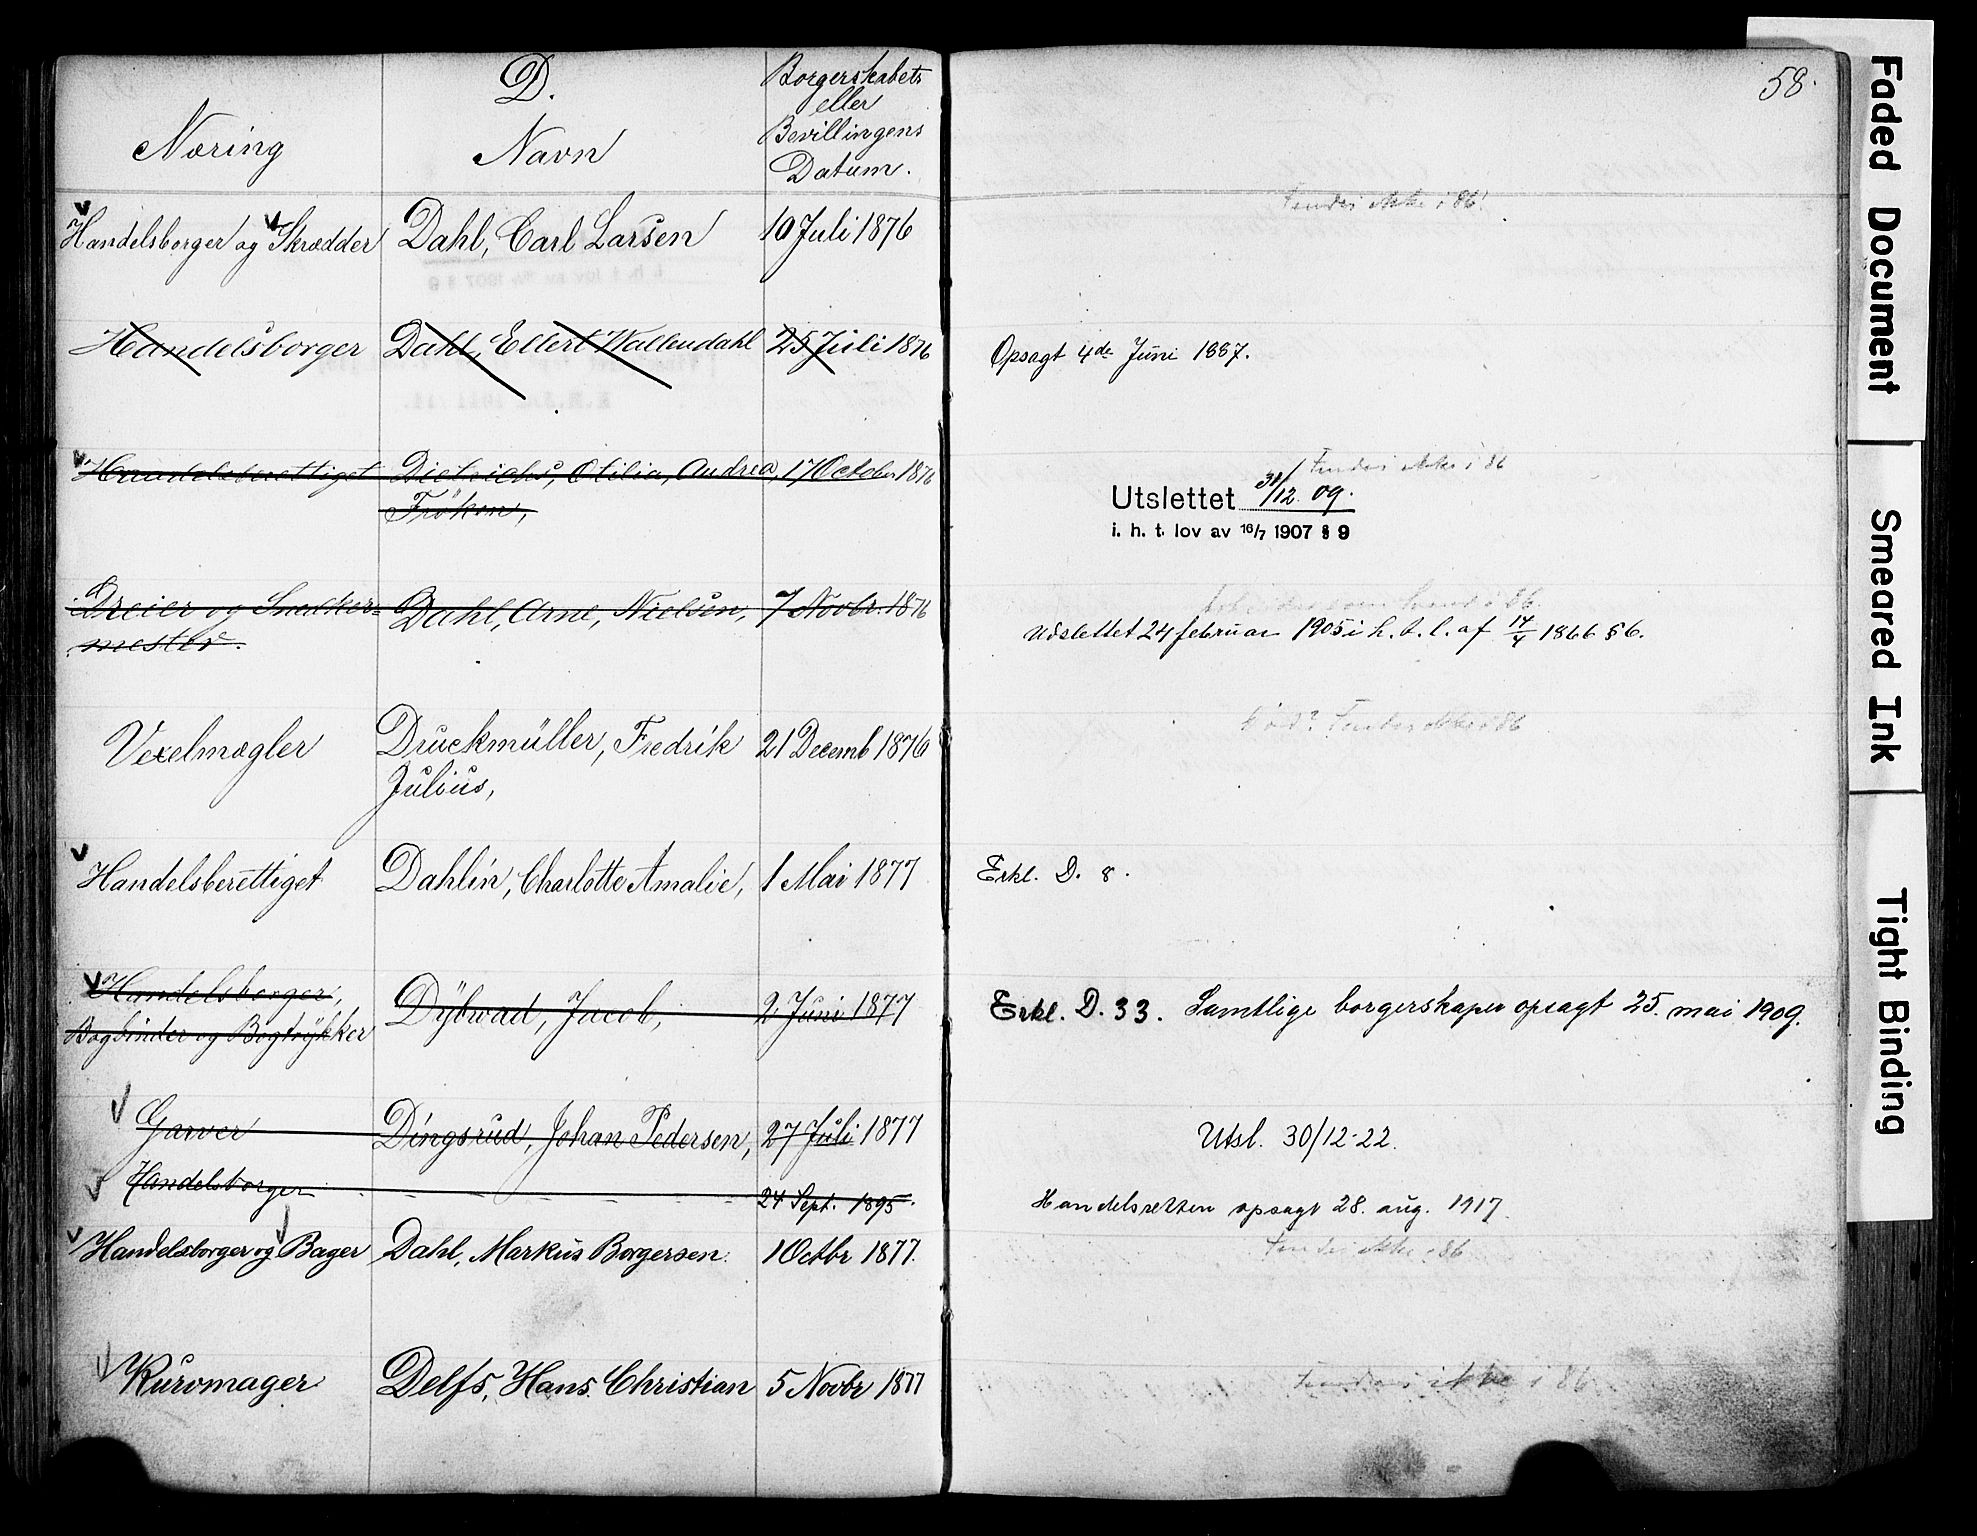 D.
58.
Næring
Navn
Borgerskabets
eller
Bevillingens
Datum.
Handelsborger og Skrædder Dahl, Carl Larsen 10 Juli 1876 Findes ikke i 86
Handelsborger Dahl, Ellert Wallendahl 25 Juli 1876 Opsagt 4de Juni 1887.
Handelsberettiget Dietrichs, Otilia, Andrea, 17 October 1876 Findes ikke i 86
Fröken,
Utslettet 31/12 09.
i. h. t. lov av 16/7 1907 § 9
Dreier og Snedker= Dahl, Arne, Nielsen, 7 Novbr. 1876
mester. Udslettet 24 februar 1905 i h. t. l. af 14/4 1866 § 6.
Vexelmægler Druckmüller, Fredrik 21 Decemb 1876 Findes ikke i 86
Julius,
Handelsberettiget Dahlin, Charlotte Amalie, 1 Mai 1877 Erkl. D. 8.
Handelsborger,
Bogbinder og Bogtrykker Dybwad, Jacob, 2 Juni 1877 Erkl. D. 33. Samtlige borgerskaper opsagt 25. mai 1909.
Garver Dingsrud, Johan Pedersen, 27 Juli 1877 Utsl. 30/12-22.
Handelsborger 24 Sept. 1895. Handelsretten opsagt 28. aug. 1917.
Handelsborger og Bager Dahl, Markus Borgersen. 1 Octbr 1877. Findes ikke i 86
Kurvmager Delfs, Hans Christian 5 Novbr 1877 Findes ikke i 86
Faded Document
Smeared Ink
Tight Binding